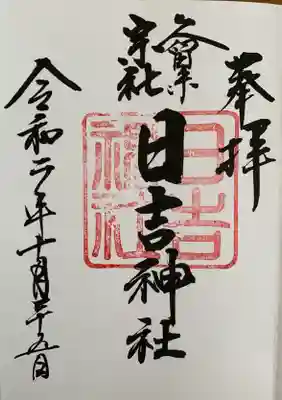 奉拝
久留米
宗社
日吉神社
日吉
神社
令和二年十月二十五日